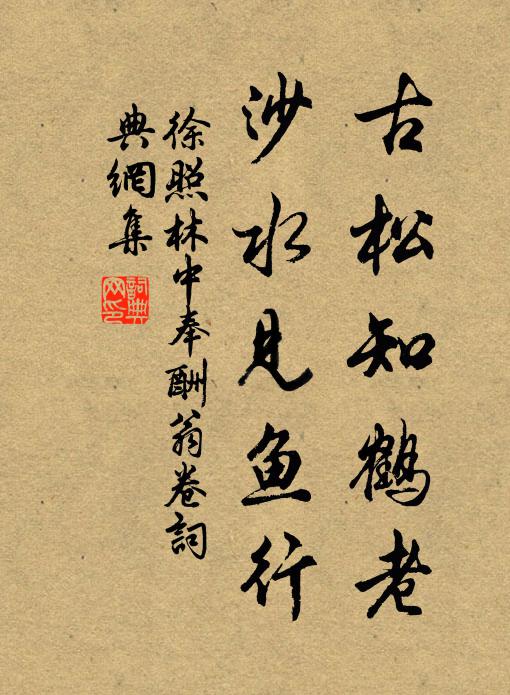 古松知鹤老
沙水见鱼行
徐照林中奉酬翁卷詞
典網集
詞典网印